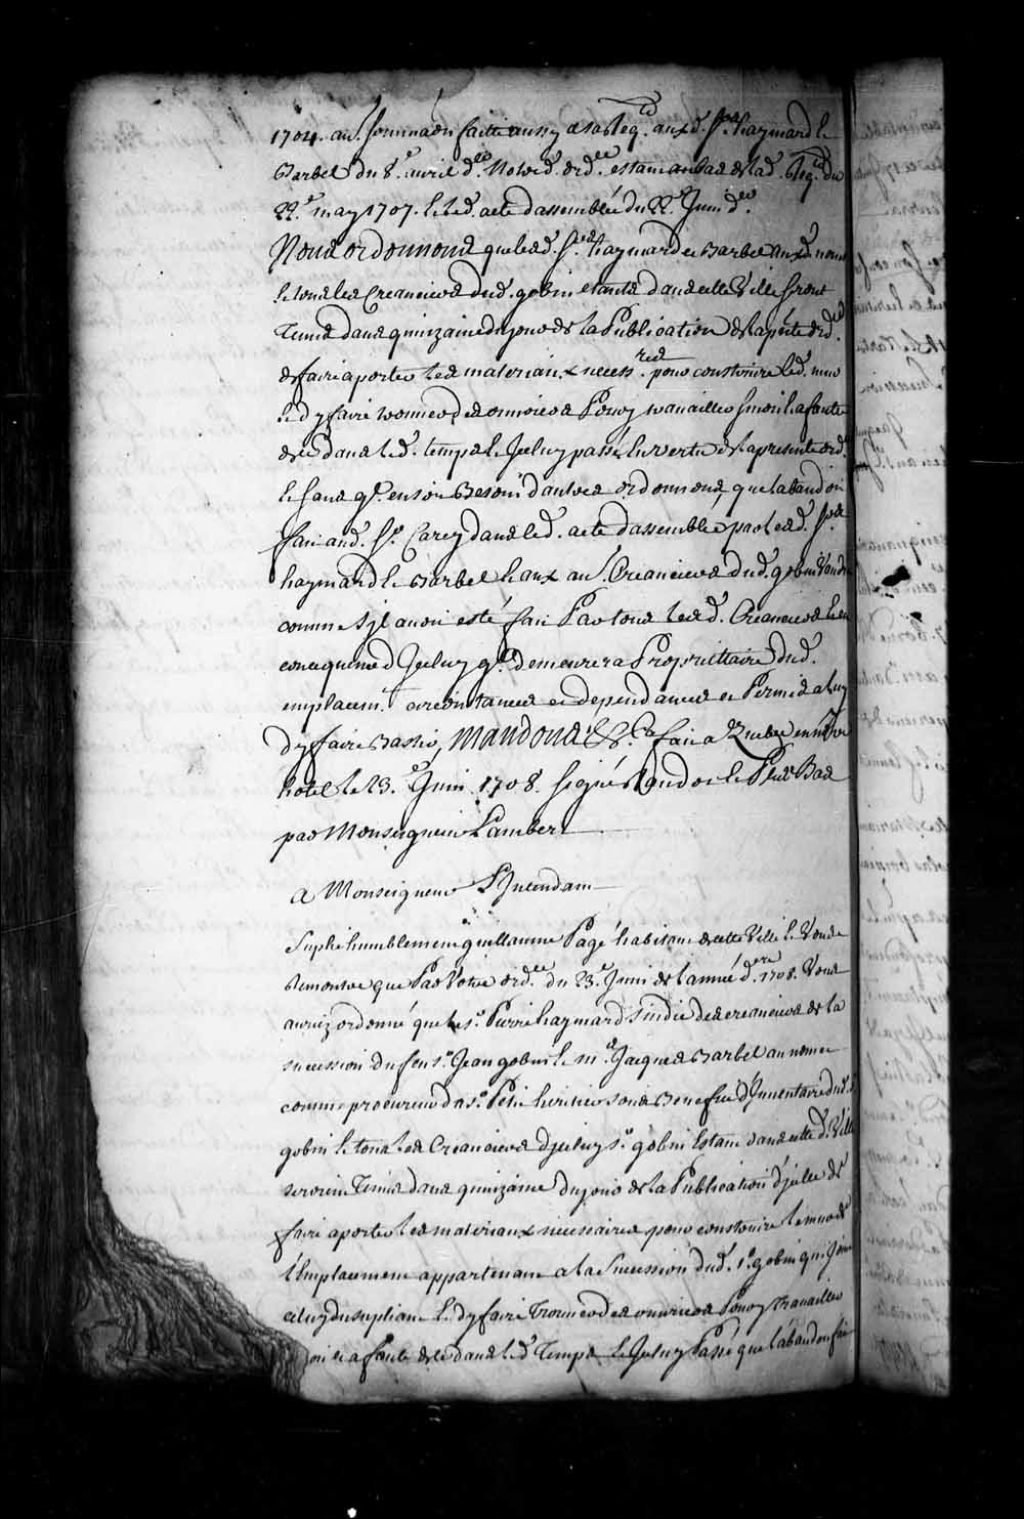 1704. autre sommaõn faitte aussy a sa Req.te auxd. Srs haymard &
Barbel du 8.e avril d.er Nostred. ord.ce estant au bas de lad. Req.te du
22.e may 1707. & led. acte d'assemblée du 22.e Juin d.er
Nous ordonnons que lesd. Srs haymard et Barbel auxd. noms
& tous les Creanciers dud. gobin estants dans cette Ville seront
Tenus dans quinzaine du jour de la Publication de la pñte ord.ce
de faire aporter les materiaux necess.res pour construire led. mur
& d'y faire trouver des ouvriers Pour y travailler sinon & a faute
de ce dans led. temps & Jceluy passé En vertu de la presente ord.ce
& sans q.l en soit Besoin d'autres ordonnons que l'abandon
fait aud. Sr. Carey dans led. acte d'assemblée par lesd. Srs
haymard & Barbel & aux autres Creanciers dud. gobin Vaudra
comme s'jl avoit esté fait Par tous lesd. Creanciers & en
consequence d'Jceluy q.l demeurera Proprietaire dud.
emplacem.t circonstances et dependances et Permis a luy
d'y faire Bastir, Mandons &c.a fait a Quebec en nôtre
hotel le 23.e Juin 1708. Signé Raudot & Plus Bas
par Monseigneur Lambert

A Monseigneur L'Jntendant
Suplie humblement guillaume Pagé habitant de cette Ville & Vous
Remontre que Par Votre ord.ce du 23.e Juin de l'année d.ere 1708. Vous
auriez ordonné que le sr. Pierre haymard sindic des creanciers de la
succession du feu sr. Jean gobin & m.e Jacques Barbel au nom et
comme procureur du sr. Petit heritier sous Benefice d'Jnventaire dud. sr.
gobin & tous les Creanciers d'jceluy sr. gobin Estant dans cette d. Ville
seroient Tenus dans quinzaine du jour de la Publication d'jcelle de
faire aporter les materiaux necessaires pour construire le mur de
l'Emplacement appartenant a la Succession dud. sr. gobin qui joint
celuy du supliant & d'y faire Trouver des ouvriers Pour y Travailler
sinon et a faute de ce dans led. Temps & Jceluy Passé que l'abandon fait